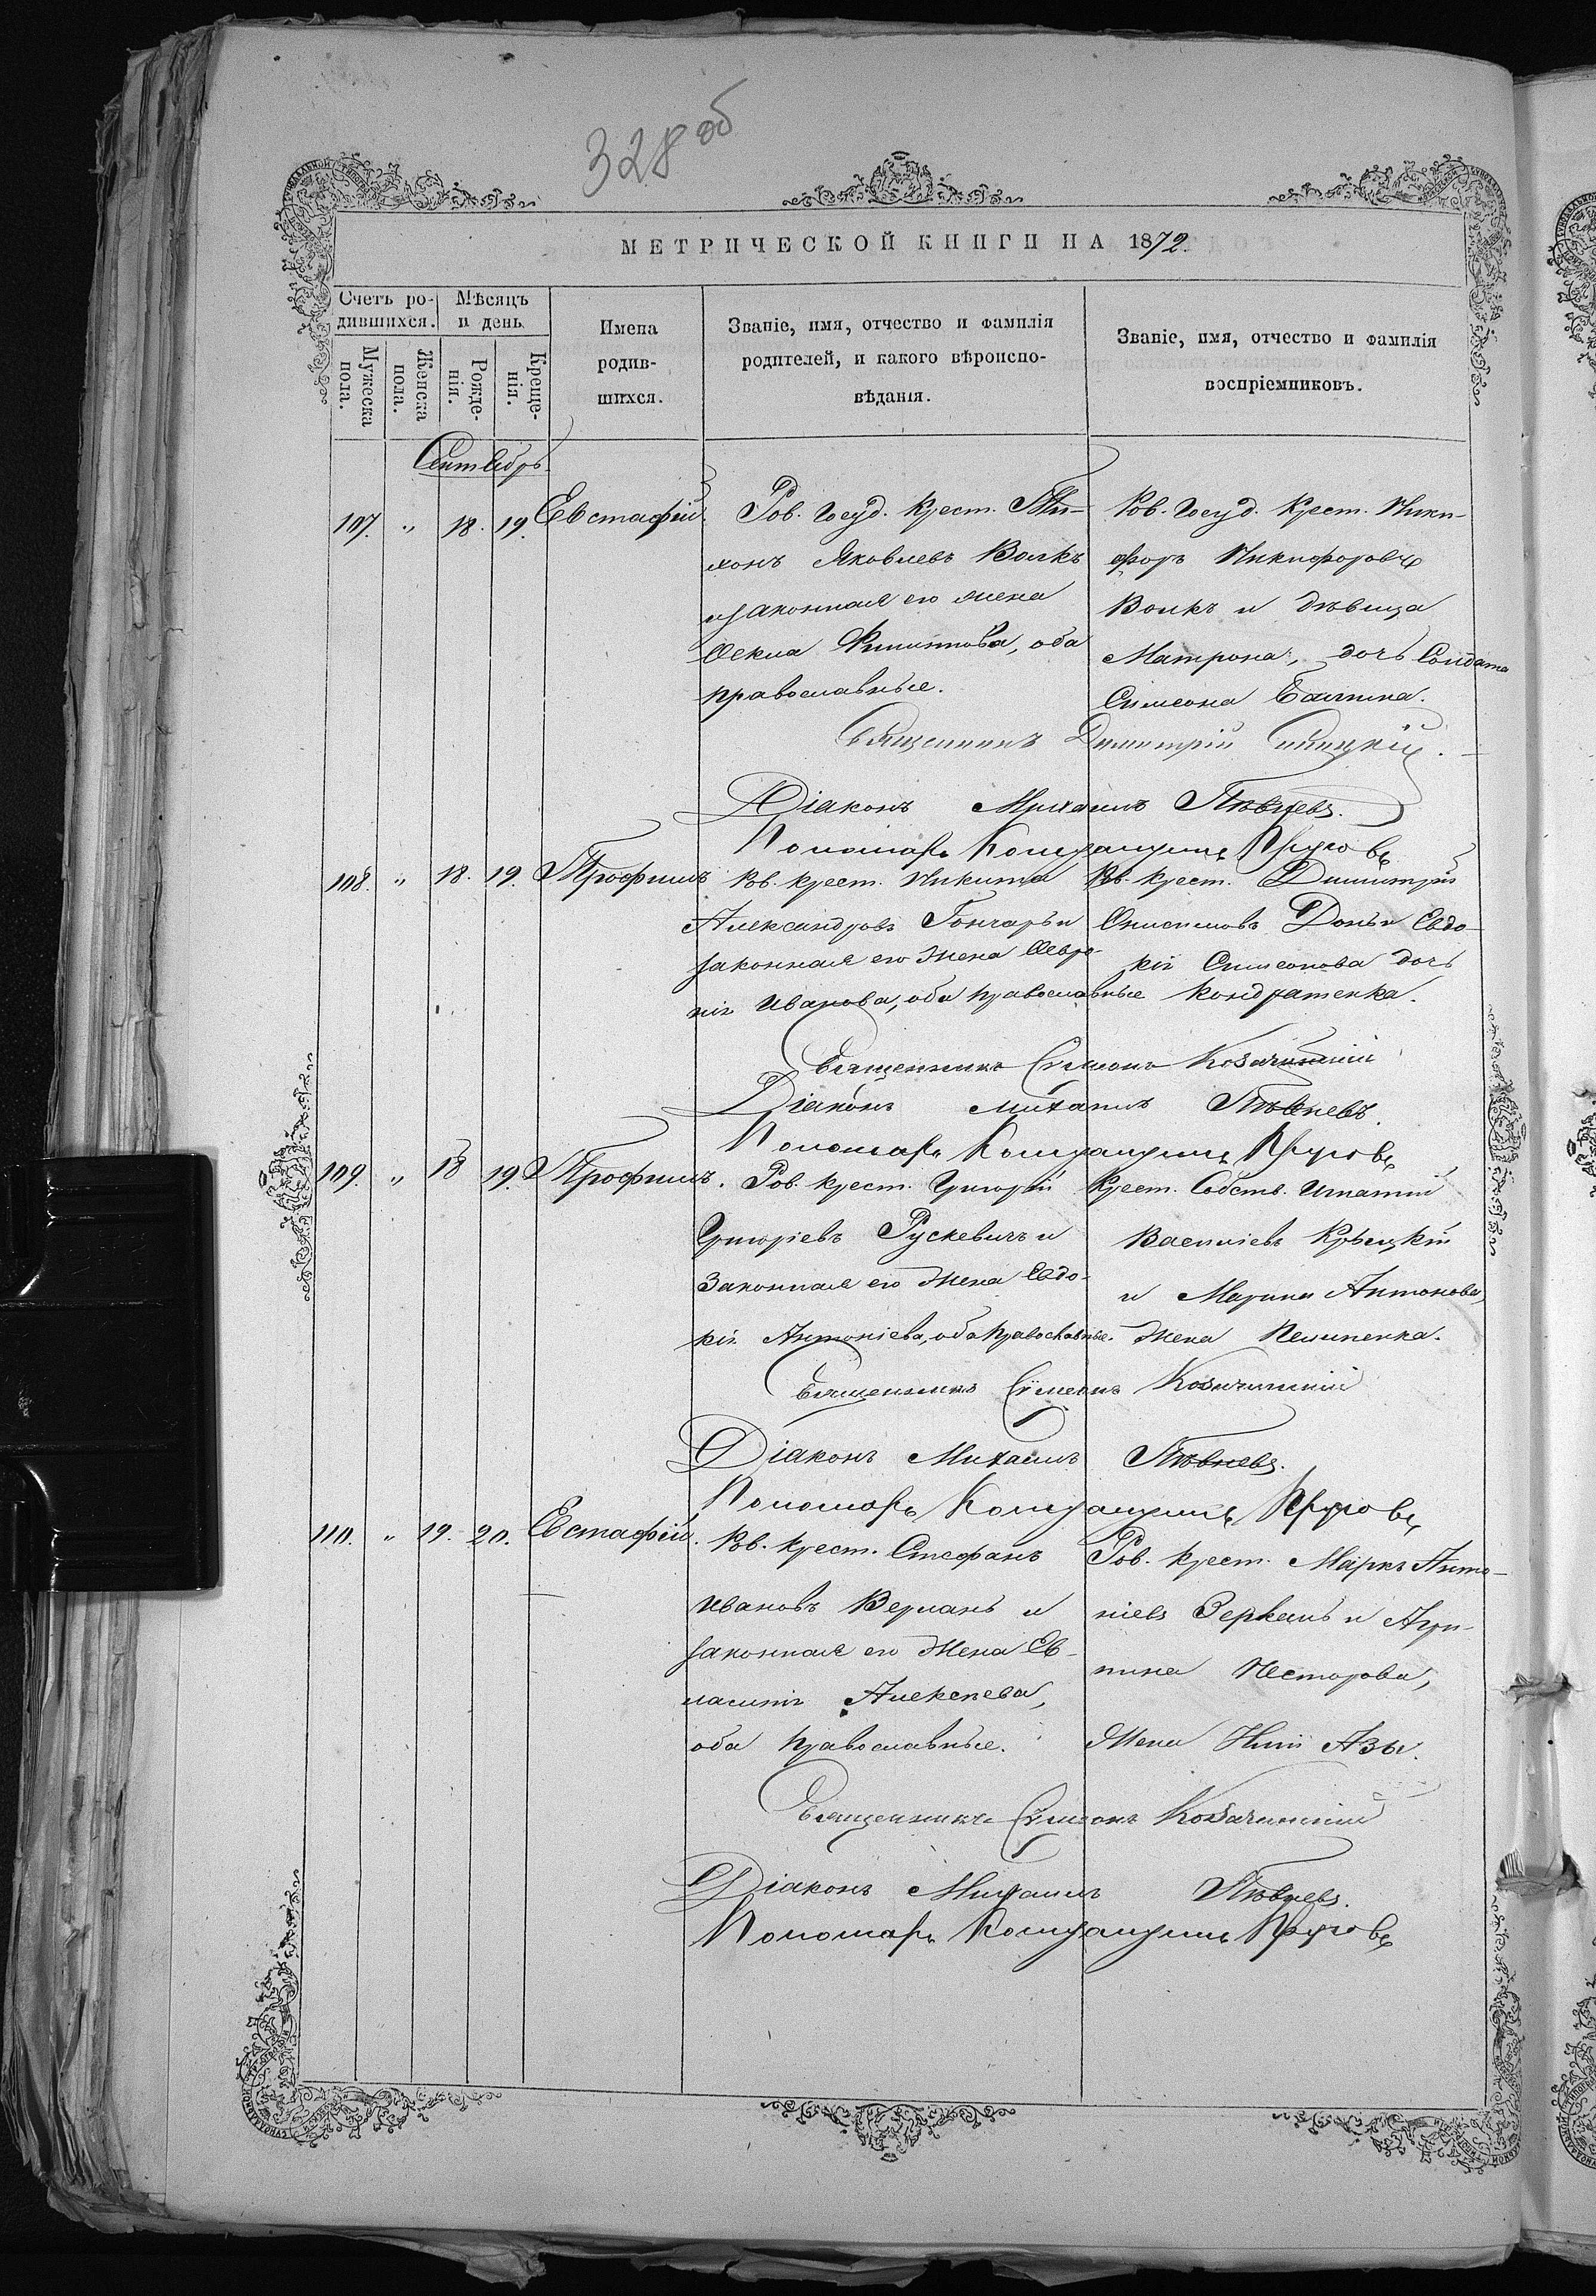 328 об
МЕТРИЧЕСКОЙ КНИГИ НА 1872.
Счетъ ро-
дившихся.
Мужеска пола.
Женска пола.
Мѣсяцъ
и день.
Рожде-
нія.
Креще-
нія.
Имена
родив-
шихся.
Званіе, имя, отчество и фамилія
родителей, и какого вѣроиспо-
вѣданія.
Званіе, имя, отчество и фамилія
воспріемниковъ.
Сентябрь.
107. " 18. 19. Евстафій.
Ров. Госуд. Крест. Ти-
хонъ Яковлевъ Волкъ
и законная его жена
Ѳекла Филиппова, оба
православные.
Ров. Госуд. Крест. Ники-
форъ Никифоровъ
Волкъ и дѣвица
Матрона, дочь Солдата
Симеона
Священникъ Димитрій
Діаконъ Михаилъ Пѣвневъ.
Пономарь
108. " 18. 19. Трофимъ
Ров. Крест. Никита
Александровъ Гончаръ и
законная его жена Февро-
нія Иванова, оба православные
Ров. Крест. Димитрій
Онисимовъ Донъ и Евдо-
кія Симеонова дочь
Кондратенка.
Священникъ Сѵмеонъ Козачинскій
Діаконъ Михаилъ Пѣвневъ.
Пономарь
109. " 18 19. Трофимъ.
Ров. Крест. Григорій
Григоріевъ Рускевичъ и
Законная его жена Евдо-
кія Антоніева, оба Православные.
Крест. Собств. Игнатій
Василіевъ
и Марина Антонова,
жена Пелипенка.
Священникъ Сѵмеонъ Козачинскій
Діаконъ Михаилъ Пѣвневъ.
Пономарь
110. " 19. 20. Евстафій.
Ров. Крест. Стефанъ
Ивановъ Верланъ и
законная его жена Ев-
лампія Алексѣева,
оба православные.
Ров. Крест. Маркъ Анто-
ніевъ Зеркаль и Агри-
пина Несторова,
Жена Азы.
Священникъ Сѵмеонъ Козачинскій
Діаконъ Михаилъ Пѣвневъ.
Пономарь